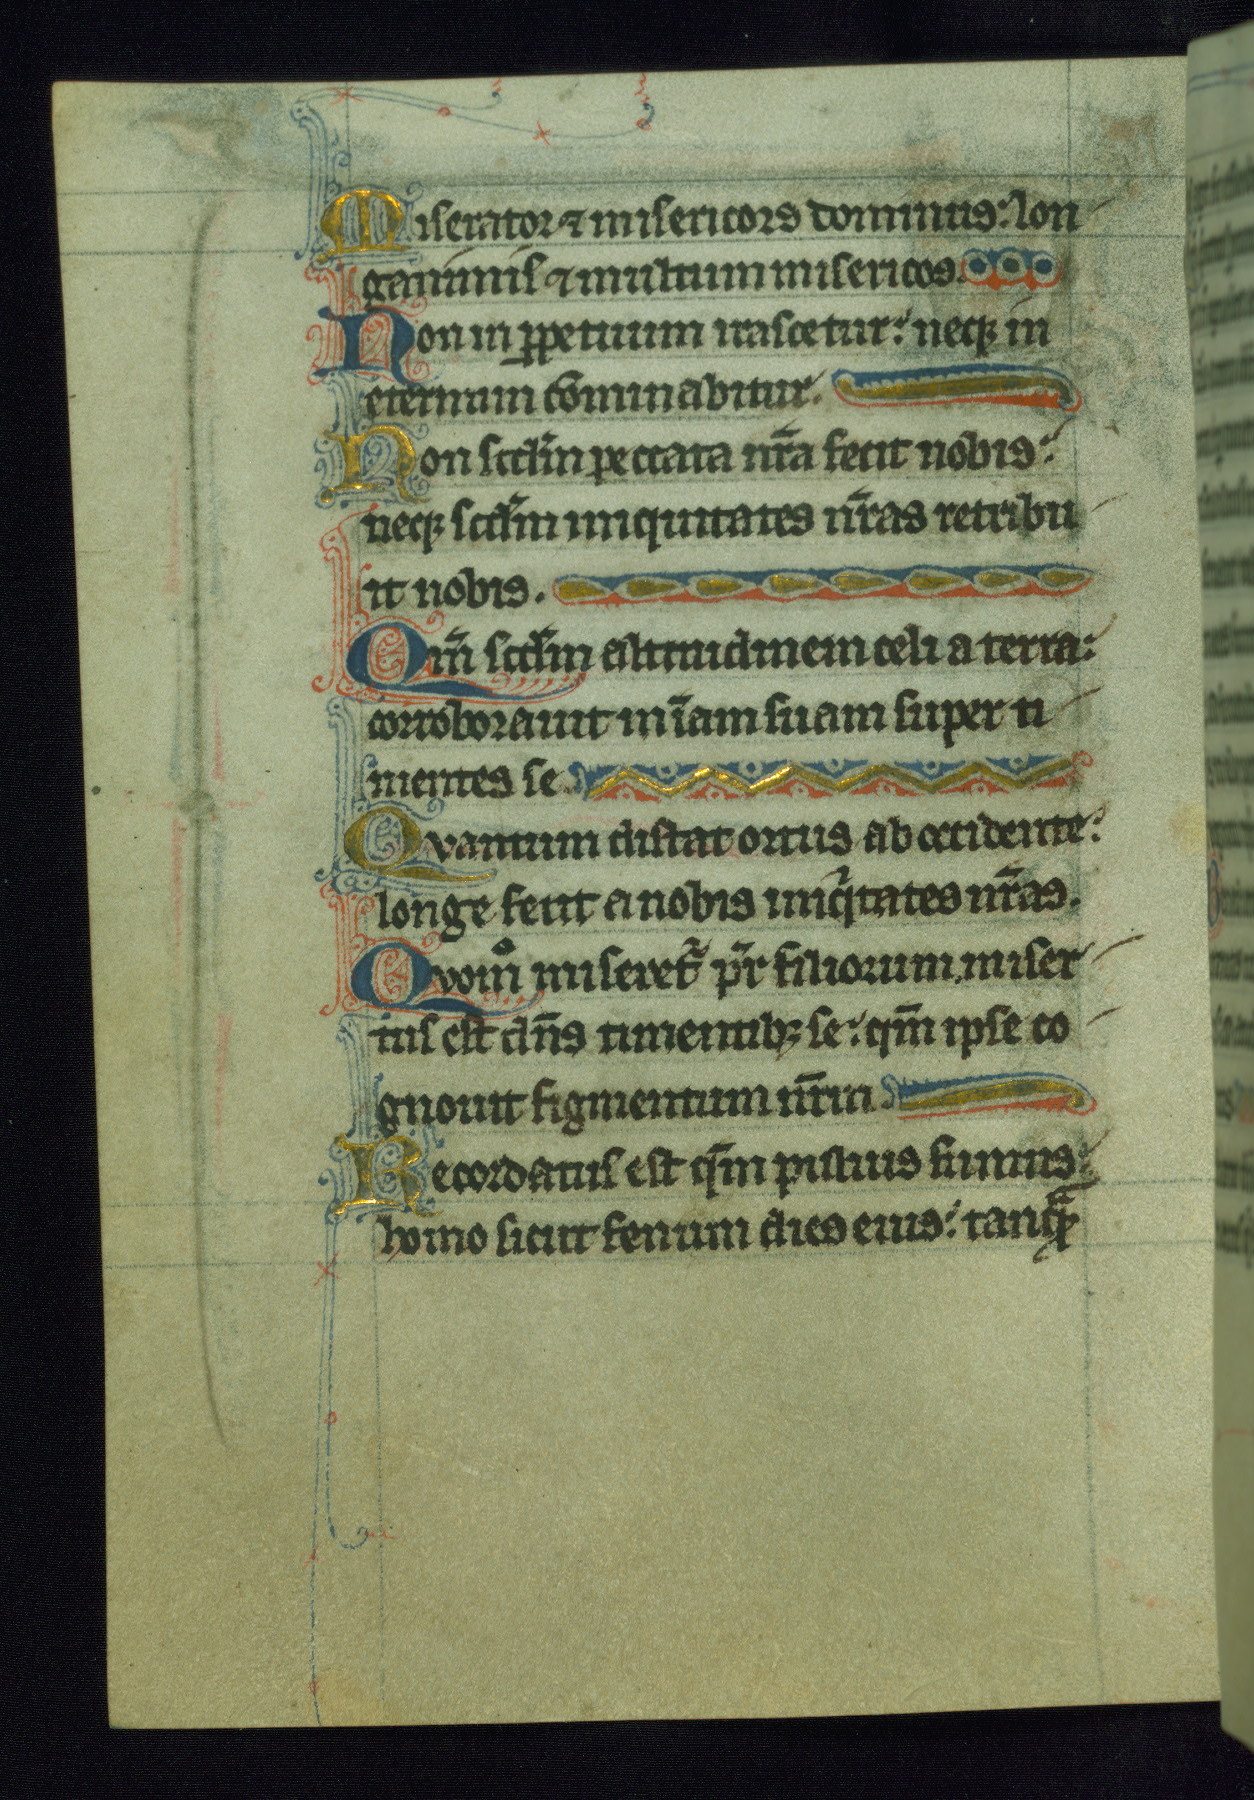 Miserator ⁊ misericors dominus: lon
ganimis ⁊ multum misericos.
Non in ꝑpetuum irascetur: neqꝫ in
eternum cōminabitur.
Non scd̄m peccata nr̄a fecit nobis:
neqꝫ scd̄m iniquitates nr̄as retribu
it nobis.
Qm̄ scd̄m altitudinem celi a terra:
corroborauit mīam suam super ti
mentes se.
Quantum distat ortus ab occidente:
longe fecit a nobis iniqͥtates nr̄as.
Quomͦ miseret᷑ pr̄ filiorum miser
tus est dn̄s timentibꝫ se: qm̄ ipse co
gnouit figmentum nr̄m.
Recordatus est qm̄ puluis sumus:
homo sicut fenum dies eius: tanqᷓꝫ